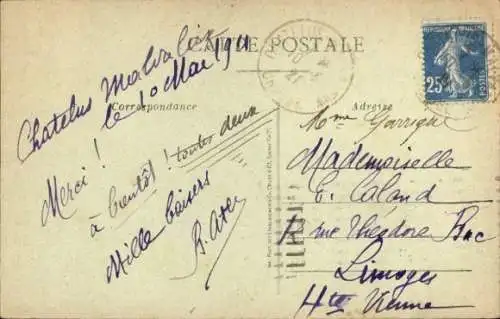 CARTE POSTALE
Correspondance
Adresse
Chatelus Malvaleix
le 10 Mai 1911
Merci !
à bientôt ! toutes deux
Mille baisers
25
POSTES
Mme Garrigue
Mademoiselle
E. Caland
7 rue Théodore Bac
Limoges
Hte Vienne